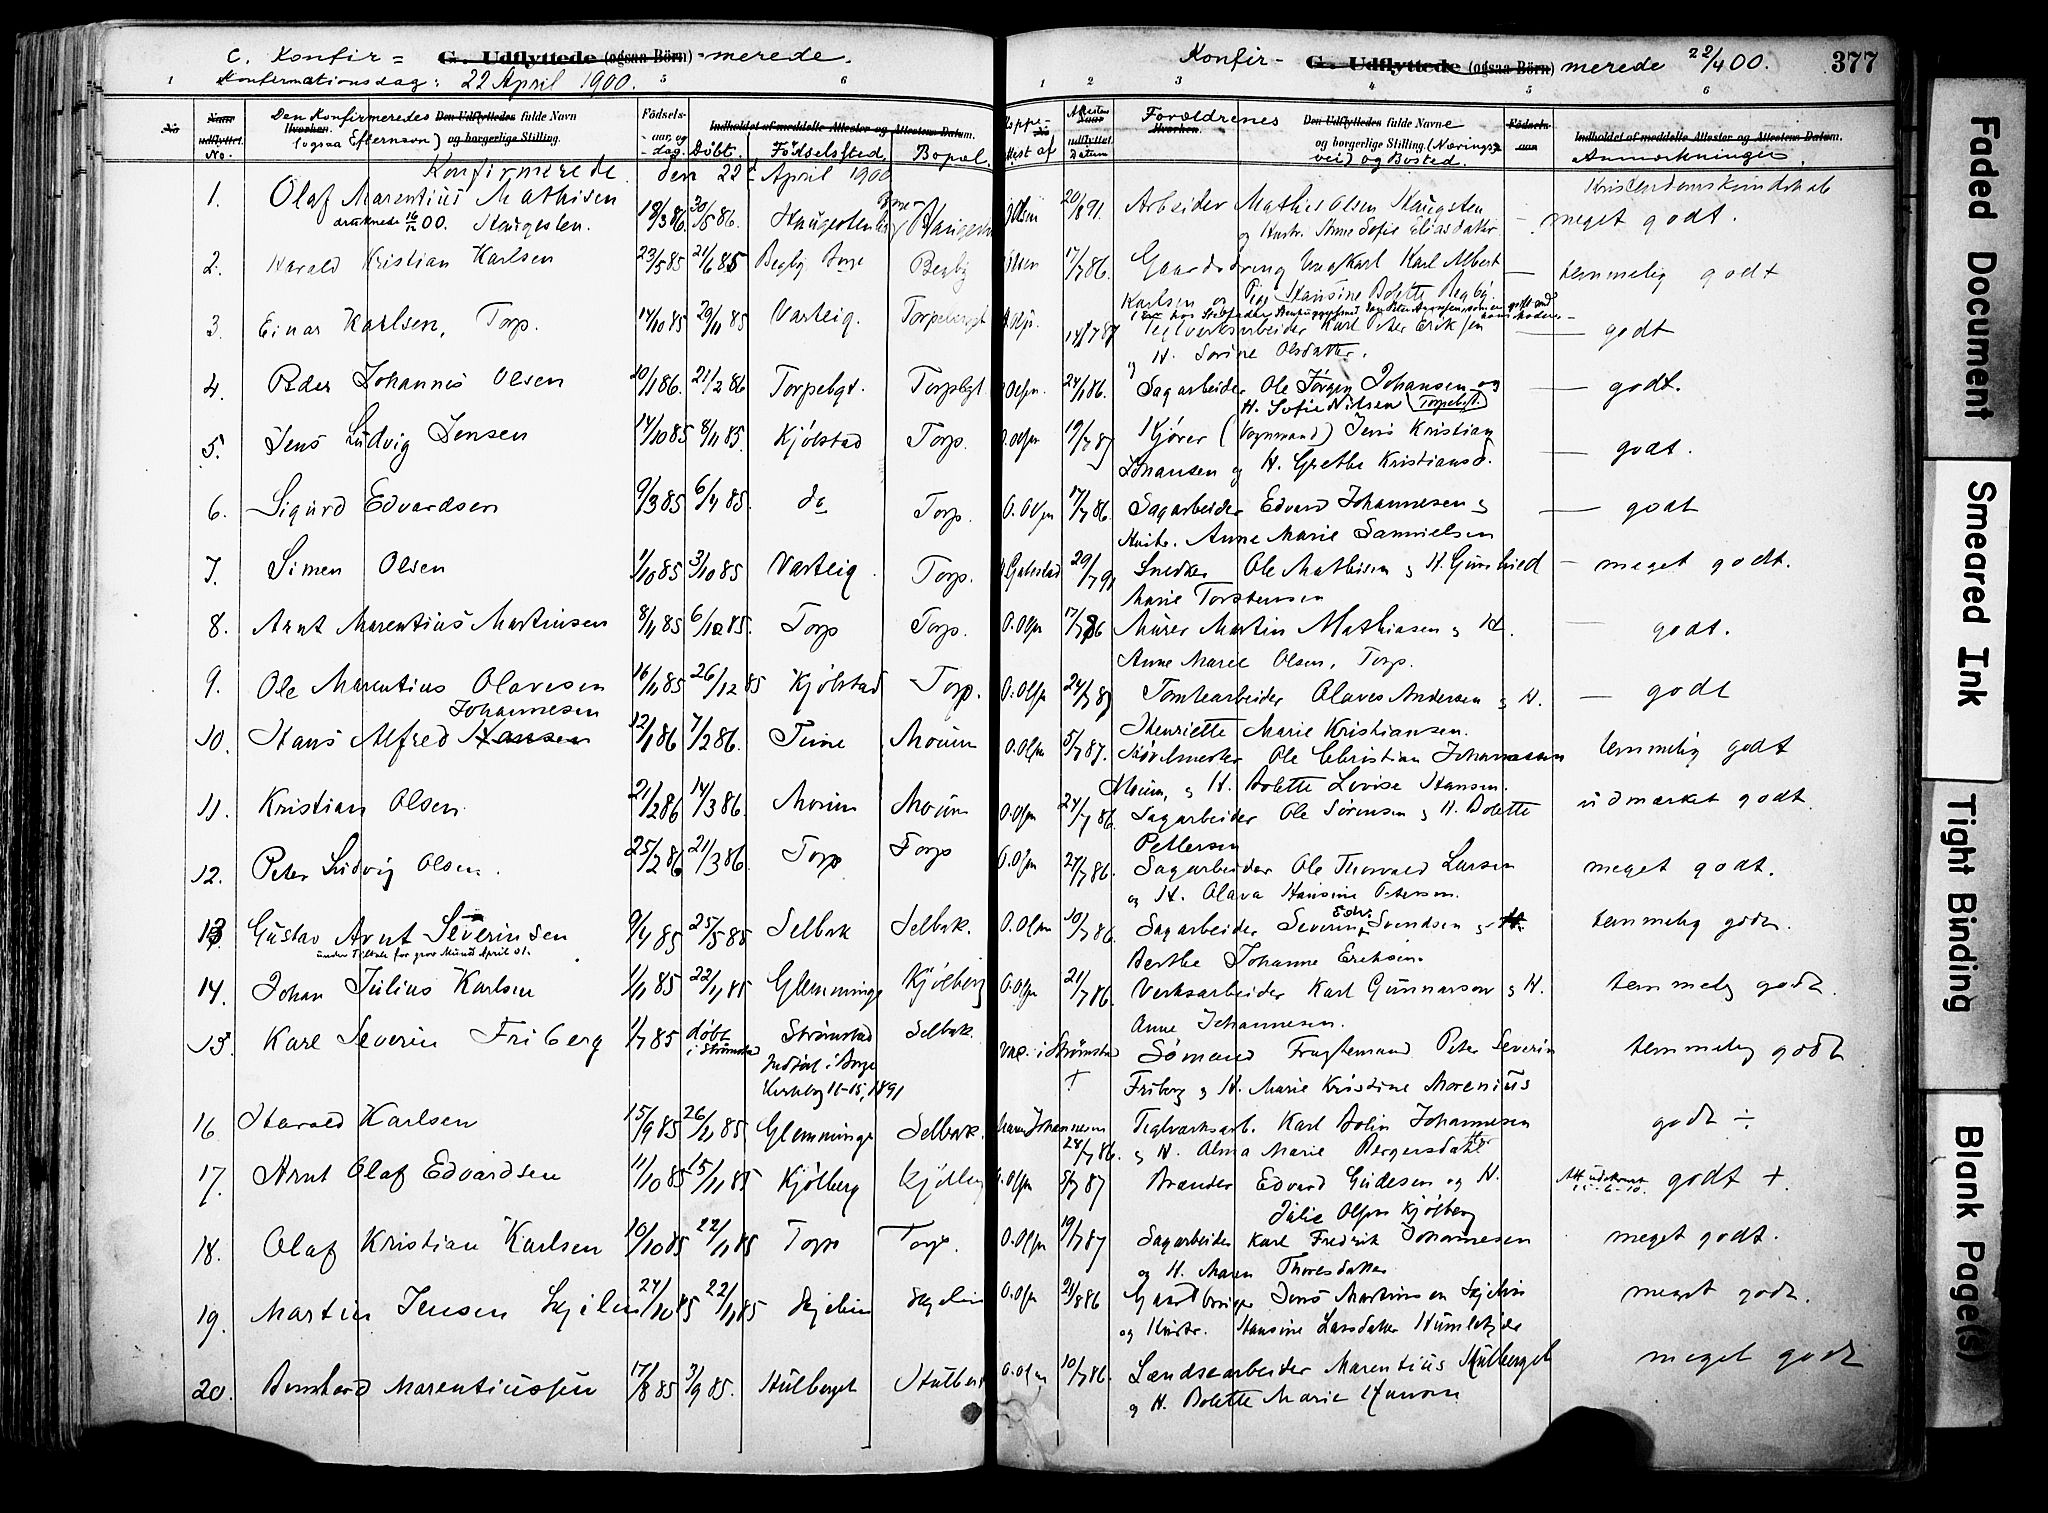 C. Konfir = G. Udflyttede (ogsaa Börn) = merede.
Konfirmationsdag: 22 April 1900.
Konfir - G. Udflyttede (ogsaa Börn) merede 22/4 00.
377
1 5 6
1 2 3 4 5 6
No Naar udflyttet. No. Den Konfirmeredes Den Udflyttedes fulde Navn (ogsaa Efternavn) og borgerlige Stilling. Födsels- aar og dag. Döbt. Indholdet af meddelte Attester og Attestens Datum. Födselssted Bopæl.
Koppe- Attest af Datum Forældrenes Den Udflyttedes fulde Navne og borgerlige Stilling (Nærings- vei) og Bosted. Födsels- aar Indholdet af meddelte Attester og Attestens Datum. Anmærkninger.
Konfirmerede den 22 April 1900
Kristendomskundskab
1. Olaf Marentius Mathisen 18/3 86. 30/5 86. Haugesten
druknede 16/12 00. Haugesten.
20/8 91. Arbeider Mathis Olsen Haugsten
og Hustr. Anne Sofie Eliasdatter
meget godt.
2. Harald Kristian Karlsen 23/5 85 21/6 85 Begby Borge Begby
17/7 86. Gaardsdreng Ungkarl Karl Albert
Karlsen og Pige Hansine Bolette Begby.
temmelig godt
3. Einar Karlsen, Torp. 14/10 85 29/11 85 Varteig.
Teglverksarbeider Karl Peter Eriksen
og H. Sorine Olsdatter.
godt
4. Peder Johannes Olsen 20/1 86. 21/2 86 Torpebgt. Torpbgt.
24/1 86. Sagarbeider Ole Jørgen Johansen og
H. Sofie Nilsen (Torpebgt.)
godt.
5. Jens Ludvig Jensen 14/10 85 8/11 85. Kjölstad Torp.
19/7 87 Kjører (Vognmand) Jens Kristian
Johansen og H. Grethe Kristiansd.
godt.
6. Sigurd Edvardsen 9/3 85 6/4 85. do Torp.
17/7 86. Sagarbeider Edvard Johannesen og
Hustr. Anne Marie Samuelsen
godt
7. Simen Olsen 1/10 85 3/10 85 Varteig Torp.
29/7 91 Snedker Ole Mathisen og H. Gunhild
Marie Torstensen
meget godt.
8. Arnt Marentius Martinsen 8/11 85 6/12 85. Torp Torp.
O. Olsen 17/7 86 Murer Martin Mathiasen og H.
Anne Marie Olsen, Torp.
godt.
9. Ole Marentius Olavesen 16/11 85 26/12 85 Kjölstad Torp.
O. Olsen 24/7 87 Tomtearbeider Olaves Andersen og H.
Henriette Marie Kristiansen.
godt
Johannesen
10. Hans Alfred Hansen 12/1 86 7/2 86. Tune Moum
O. Olsen 5/7 87. Høvelmester Ole Christian Johannesen
Moum, og H. Bolette Lovise Hansen.
temmelig godt
11. Kristian Olsen. 21/2 86 14/3 86. Moum Moum
O. Olsen 24/7 86. Sagarbeider Ole Sørensen og H. Bolette
Pettersen
udmærket godt.
12. Peter Ludvig Olsen. 25/2 86 21/3 86. Torp Torp
O. Olsen 24/7 86. Sagarbeider Ole Thorvald Larsen
og H. Olava Hansine Petersen.
meget godt.
13. Gustav Arnt Severinsen 9/4 85 25/5 85 Selbak Selbak.
under Tiltale for grov Mund April 01.
O. Olsen 10/7 86. Sagarbeider Severin Edv. Svendsen og H.
Berthe Johanne Eriksen.
temmelig godt.
14. Johan Julius Karlsen 1/11 85 22/11 85 Glemminge Kjölberg
O. Olsen 21/7 86. Verksarbeider Karl Gunnarson og H.
Anne Johannesen.
temmelig godt.
15. Karl Severin Friberg 1/7 85 döbt i Strömstad Strömstad Selbak.
Indført i Borge Kirkebog 1891
Vac. i Strømstad Sømand Fragtemand Peter Severin
+ Friberg og H. Marie Kristine Morenius
temmelig godt
16 Harald Karlsen 15/9 85 26/11 85 Glemminge Selbak.
Johannesen Teglværksarb. Karl Bolin Johannesen
24/7 86. og H. Alma Marie Bergersdatter
godt ÷
17. Arnt Olaf Edvardsen 11/10 85 15/11 85 Kjölberg Kjölberg
O. Olsen 8/7 87 Brænder Edvard Gudesen og H.
Julie Olsen Kjölberg
godt +
18. Olaf Kristian Karlsen 10/10 85 22/11 85 Torp Torp.
O. Olsen 19/7 87 Sagarbeider Karl Fredrik Johannesen
og H. Maren Thoresdatter
meget godt.
19. Martin Jensen Skjelin 24/10 85 22/11 85 Skjelin Skjelin
O. Olsen 21/8 86 Gaardbruger Jens Martinsen Skjelin
og Hustr. Hansine Larsdatter
meget godt.
20. Bernhard Marentiussen 17/8 85 3/9 85. Hulberget
O. Olsen 10/7 86. Lændsearbeider Marentius Hulberget
og H. Bolette Marie Hansen
meget godt
Faded Document
Smeared Ink
Tight Binding
Blank Page(s)